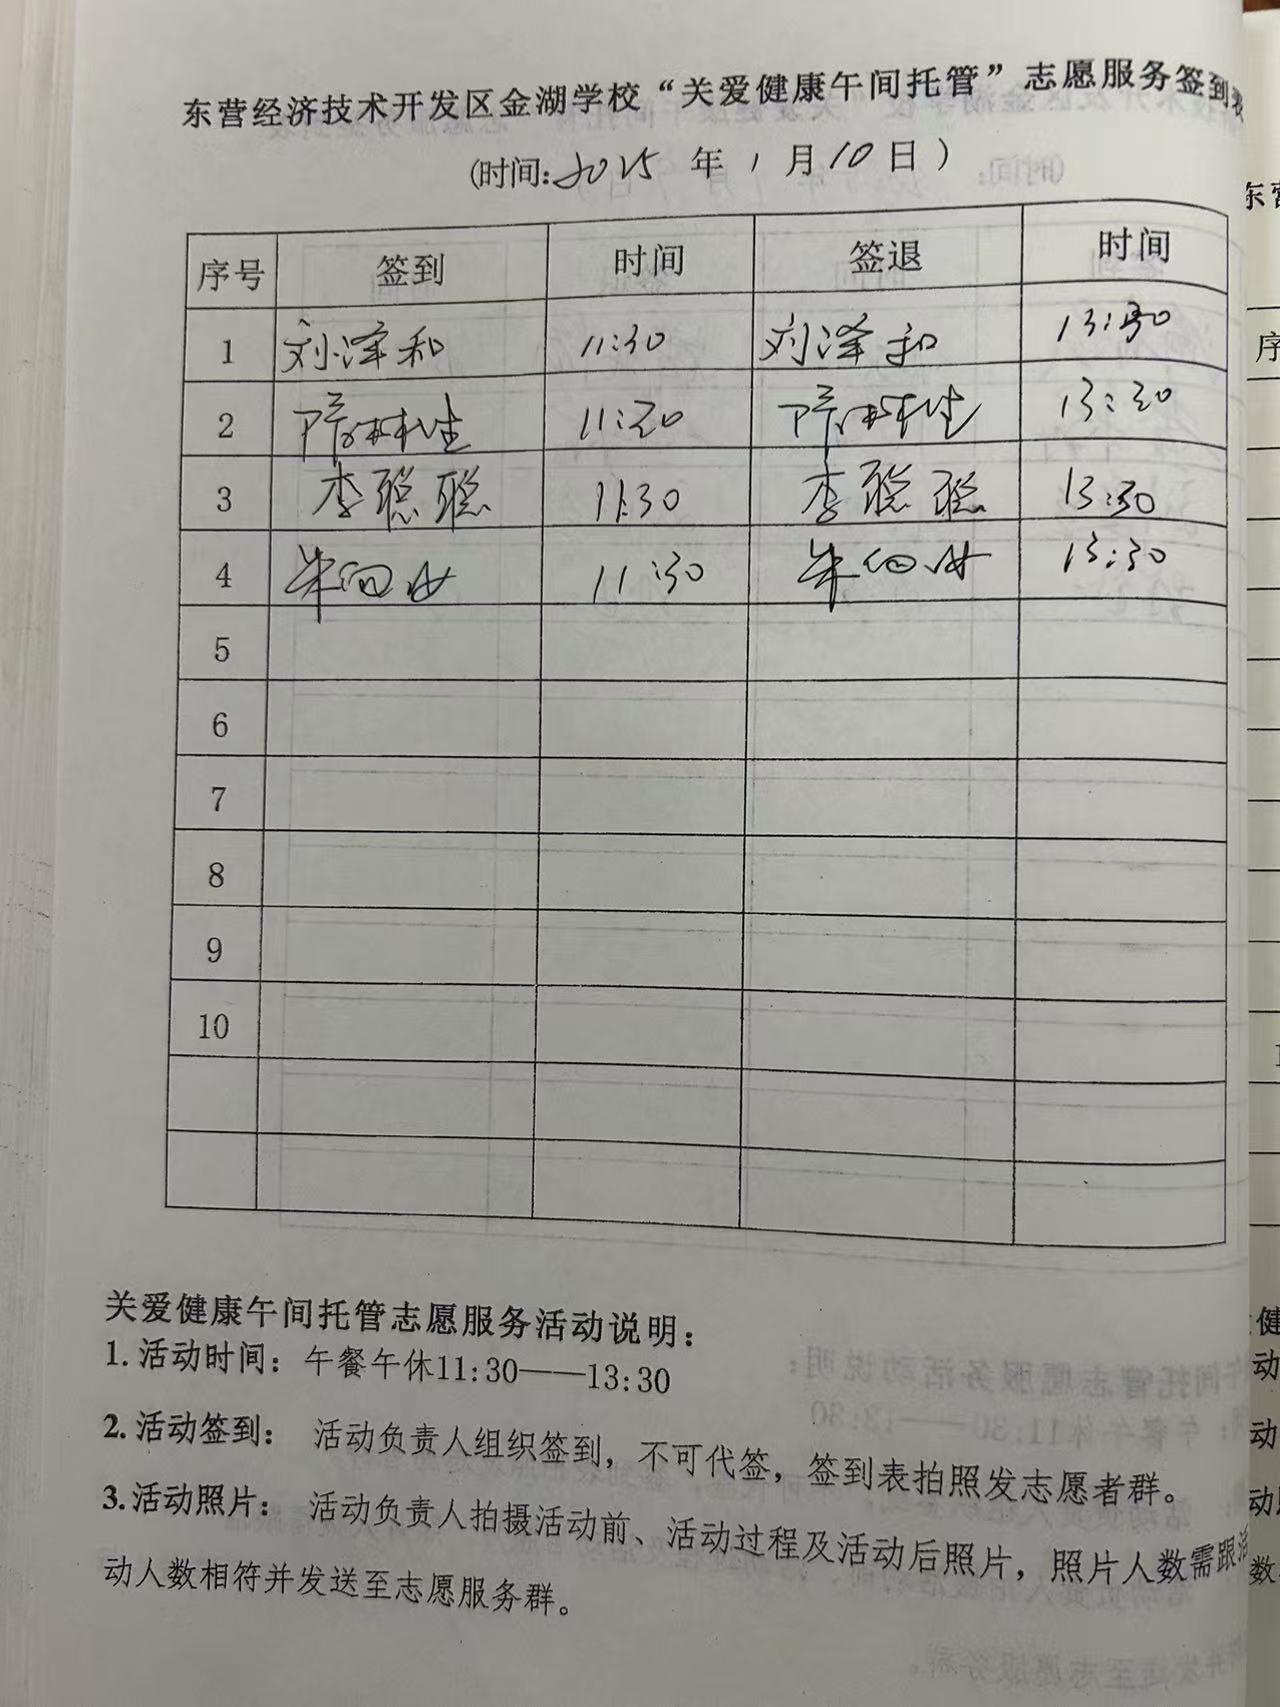 东营经济技术开发区金湖学校“关爱健康午间托管”志愿服务签到表
(时间:2025 年 1 月 10 日)
序号 签到 时间 签退 时间
1 刘泽和 11:30 刘泽和 13:30
2 11:30 13:30
3 李聪聪 11:30 李聪聪 13:30
4 11:30 13:30
5
6
7
8
9
10
关爱健康午间托管志愿服务活动说明：
1. 活动时间：午餐午休11:30——13:30
2. 活动签到： 活动负责人组织签到，不可代签，签到表拍照发志愿者群。
3.活动照片： 活动负责人拍摄活动前、活动过程及活动后照片，照片人数需跟活
动人数相符并发送至志愿服务群。